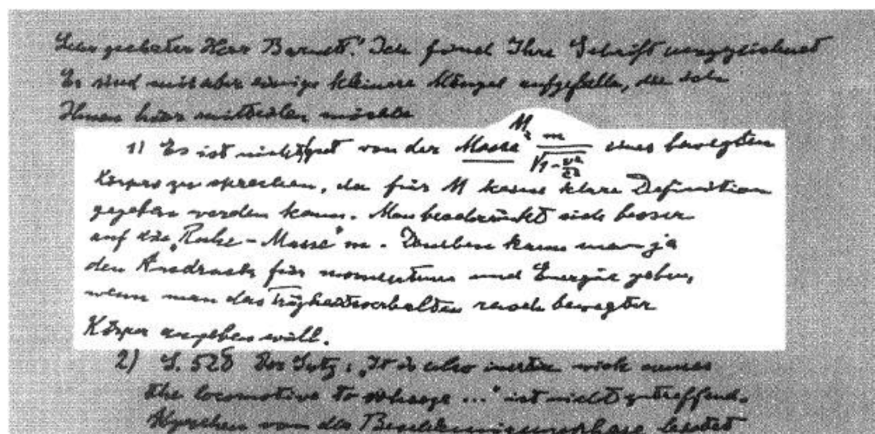 Sehr geehrter Herr Barnett! Ich finde Ihre Schrift ausgezeichnet
Es sind mir aber einige kleinere Mängel aufgefallen, die ich
Ihnen hier mitteilen möchte
1) Es ist nicht gut von der Masse M = m/√(1-v²/c²) eines bewegten
Körpers zu sprechen, da für M keine klare Definition
gegeben werden kann. Man beschränkt sich besser
auf die „Ruhe-Masse" m. Daneben kann man ja
den Ausdruck für momentum und Energie geben,
wenn man das Trägheitsverhalten rasch bewegter
Körper angeben will.
2) S. 528 Der Satz: „It is also inertia
the locomotive to ..." ist nicht zutreffend.
von der